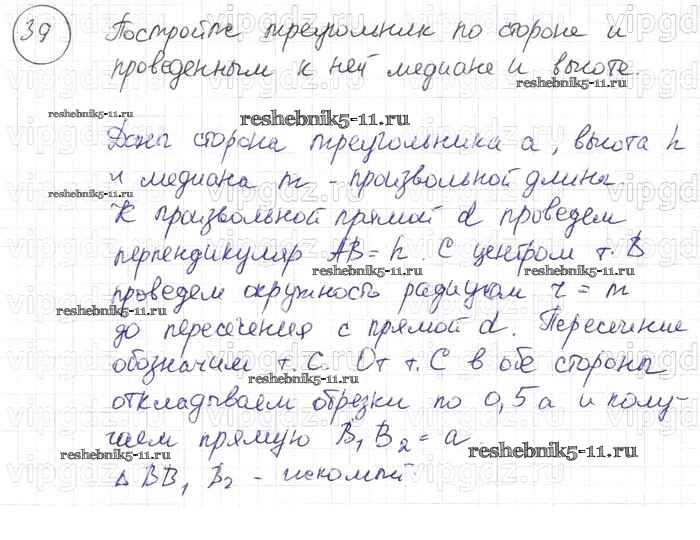 39 Постройте треугольник по стороне и
проведенным к ней медиане и высоте.
reshebnik5-11.ru reshebnik5-11.ru
Даны сторона треугольника a, высота h
reshebnik5-11.ru
и медиана m - произвольной длины.
К произвольной прямой d проведем
перпендикуляр AB = h. С центром т. B
reshebnik5-11.ru reshebnik5-11.ru
проведем окружность радиусом r = m
reshebnik5-11.ru
до пересечения с прямой d. Пересечение
обозначим т. C. От т. C в обе стороны
reshebnik5-11.ru
откладываем отрезки по 0,5a и полу-
чаем прямую B₁B₂ = a
reshebnik5-11.ru reshebnik5-11.ru
Δ BB₁B₂ - искомый.